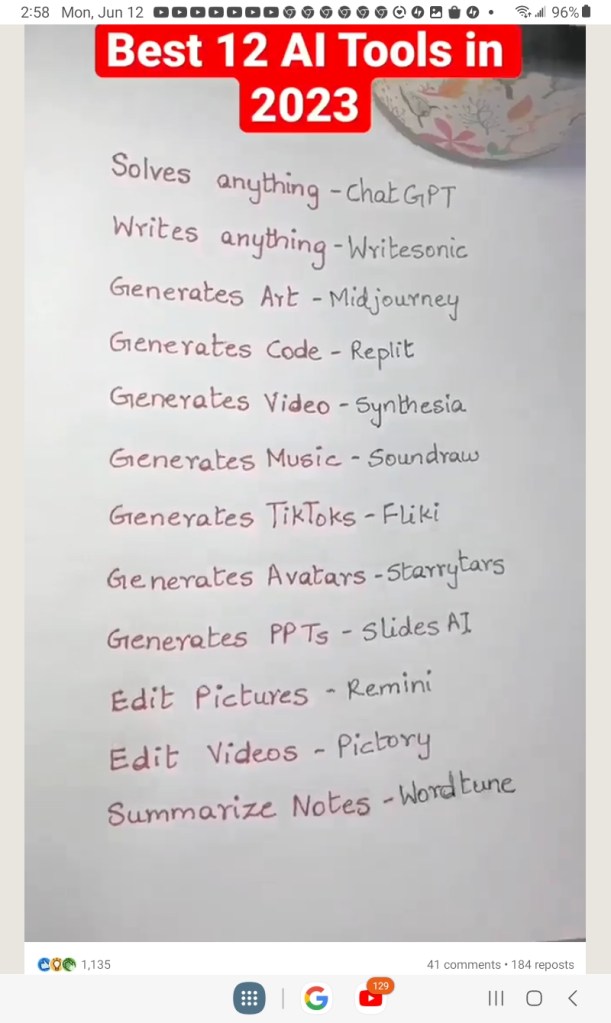 2:58 Mon, Jun 12
96%
Best 12 AI Tools in
2023
Solves anything - Chat GPT
Writes anything - Writesonic
Generates Art - Midjourney
Generates Code - Replit
Generates Video - Synthesia
Generates Music - Soundraw
Generates TikToks - Fliki
Generates Avatars - Starrytars
Generates PPTs - Slides AI
Edit Pictures - Remini
Edit Videos - Pictory
Summarize Notes - Wordtune
1,135
41 comments • 184 reposts
129